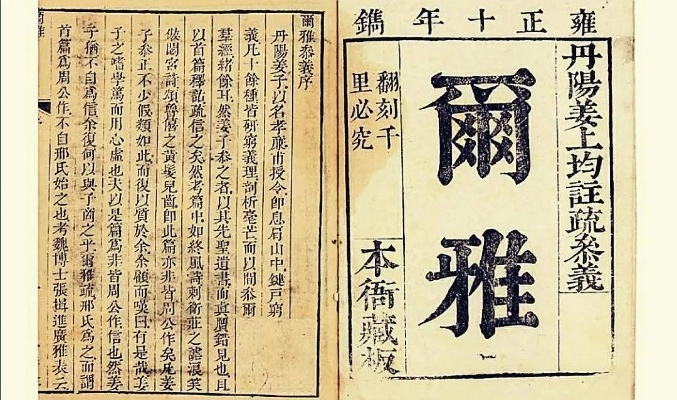 雍正十年鐫
丹陽姜上均註疏叅義
爾雅
翻刻千
里必究
本衙藏板
爾雅叅義序
丹陽姜子以名孝廉甫授令卽息肩山中鍵戸窮
義凡十餘種皆研窮義理剖析毫芒而以間叅爾
羣經緒餘耳然姜子叅之者以其先聖遺書而眞贋錯見也且
以首篇釋詁疏信之矣然考篇中如終風詩刺衛莊之謔浪笑
傲閟宮詩頌魯僖之黃髮兒齒卽此篇亦非皆周公作矣姜
子叅正不少假類如此而復以質於余余顧而嘆曰有是哉姜
子之嗜學篤而用心虛也夫以是篇爲非皆周公作信也然姜
子猶不自爲信余復何以與子商之乎爾雅疏邢氏爲之而謂
首篇爲周公作不自邢氏始之也考魏博士張揖進廣雅表云